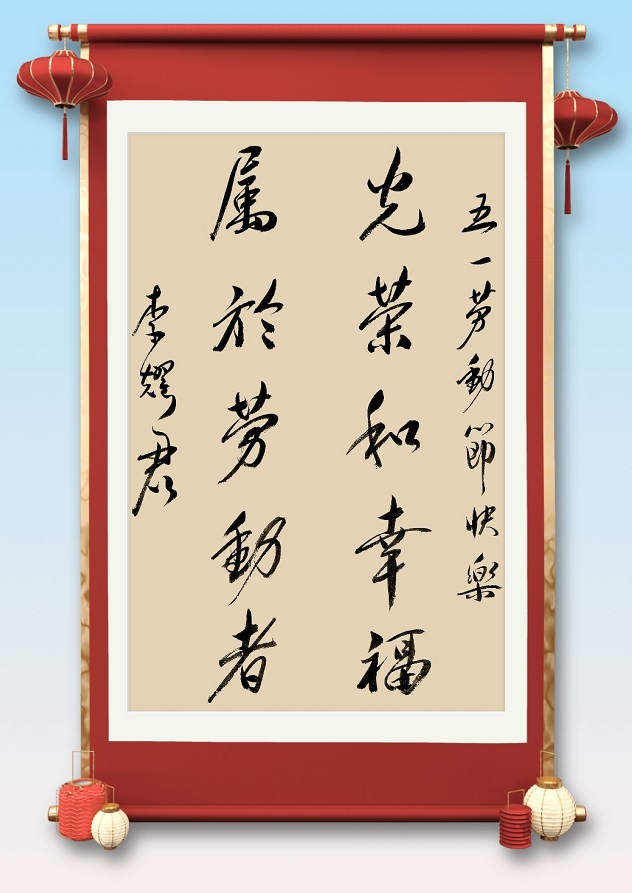 五一劳動節快樂
光荣和幸福
属於劳動者
李耀君